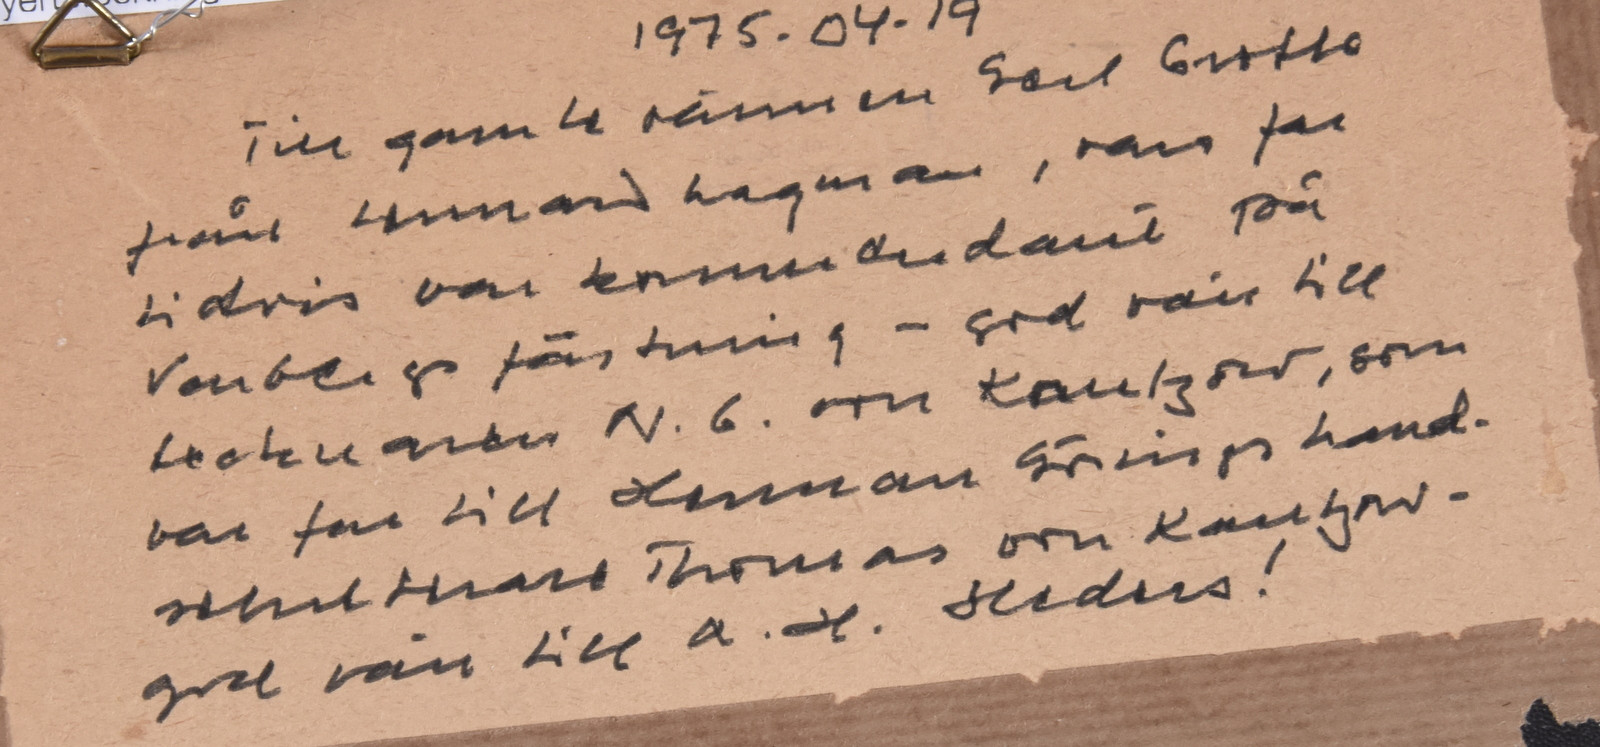 1975-04-19
Till gamle vännen Carl Grotte
från Lennard Hagman, vars far
tidvis var kommendant på
Varbergs fästning - god vän till
tecknaren N. G. von Kantzow, som
var far till Herman Görings hand-
sekreterare Thomas von Kantzow -
god vän till A. H. Heders!